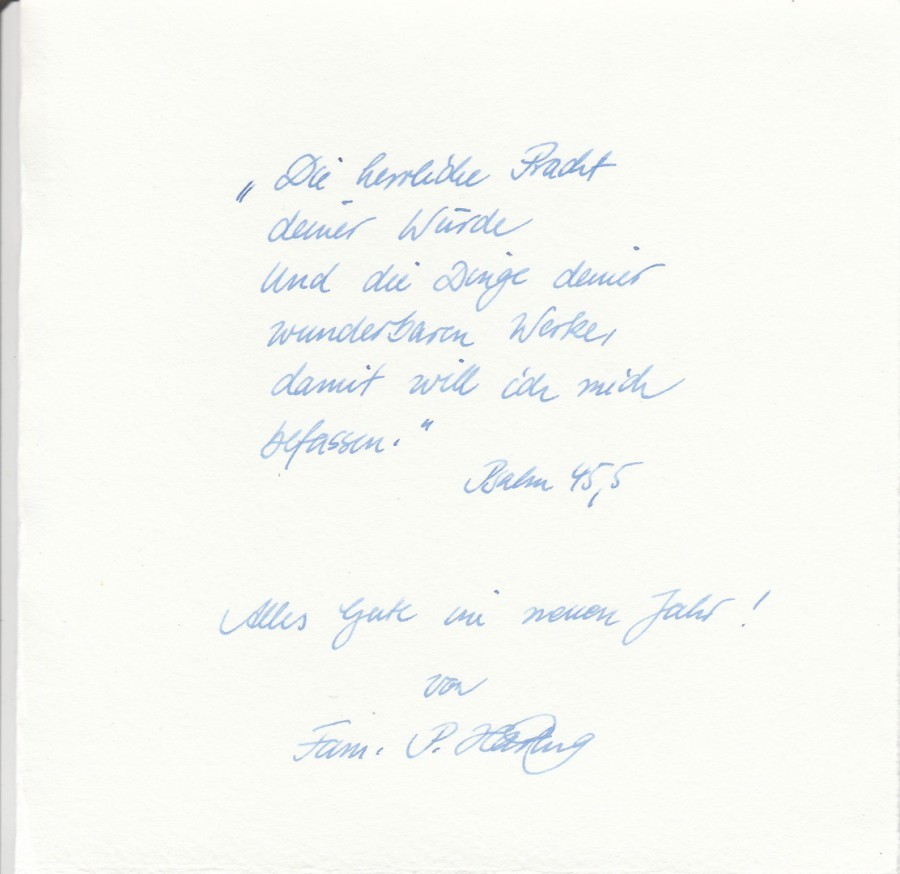 „Die herrliche Pracht
deiner Würde
Und die Dinge deiner
wunderbaren Werke,
damit will ich mich
befassen."
Psalm 45,5
Alles Gute im neuen Jahr!
von
Fam. P.